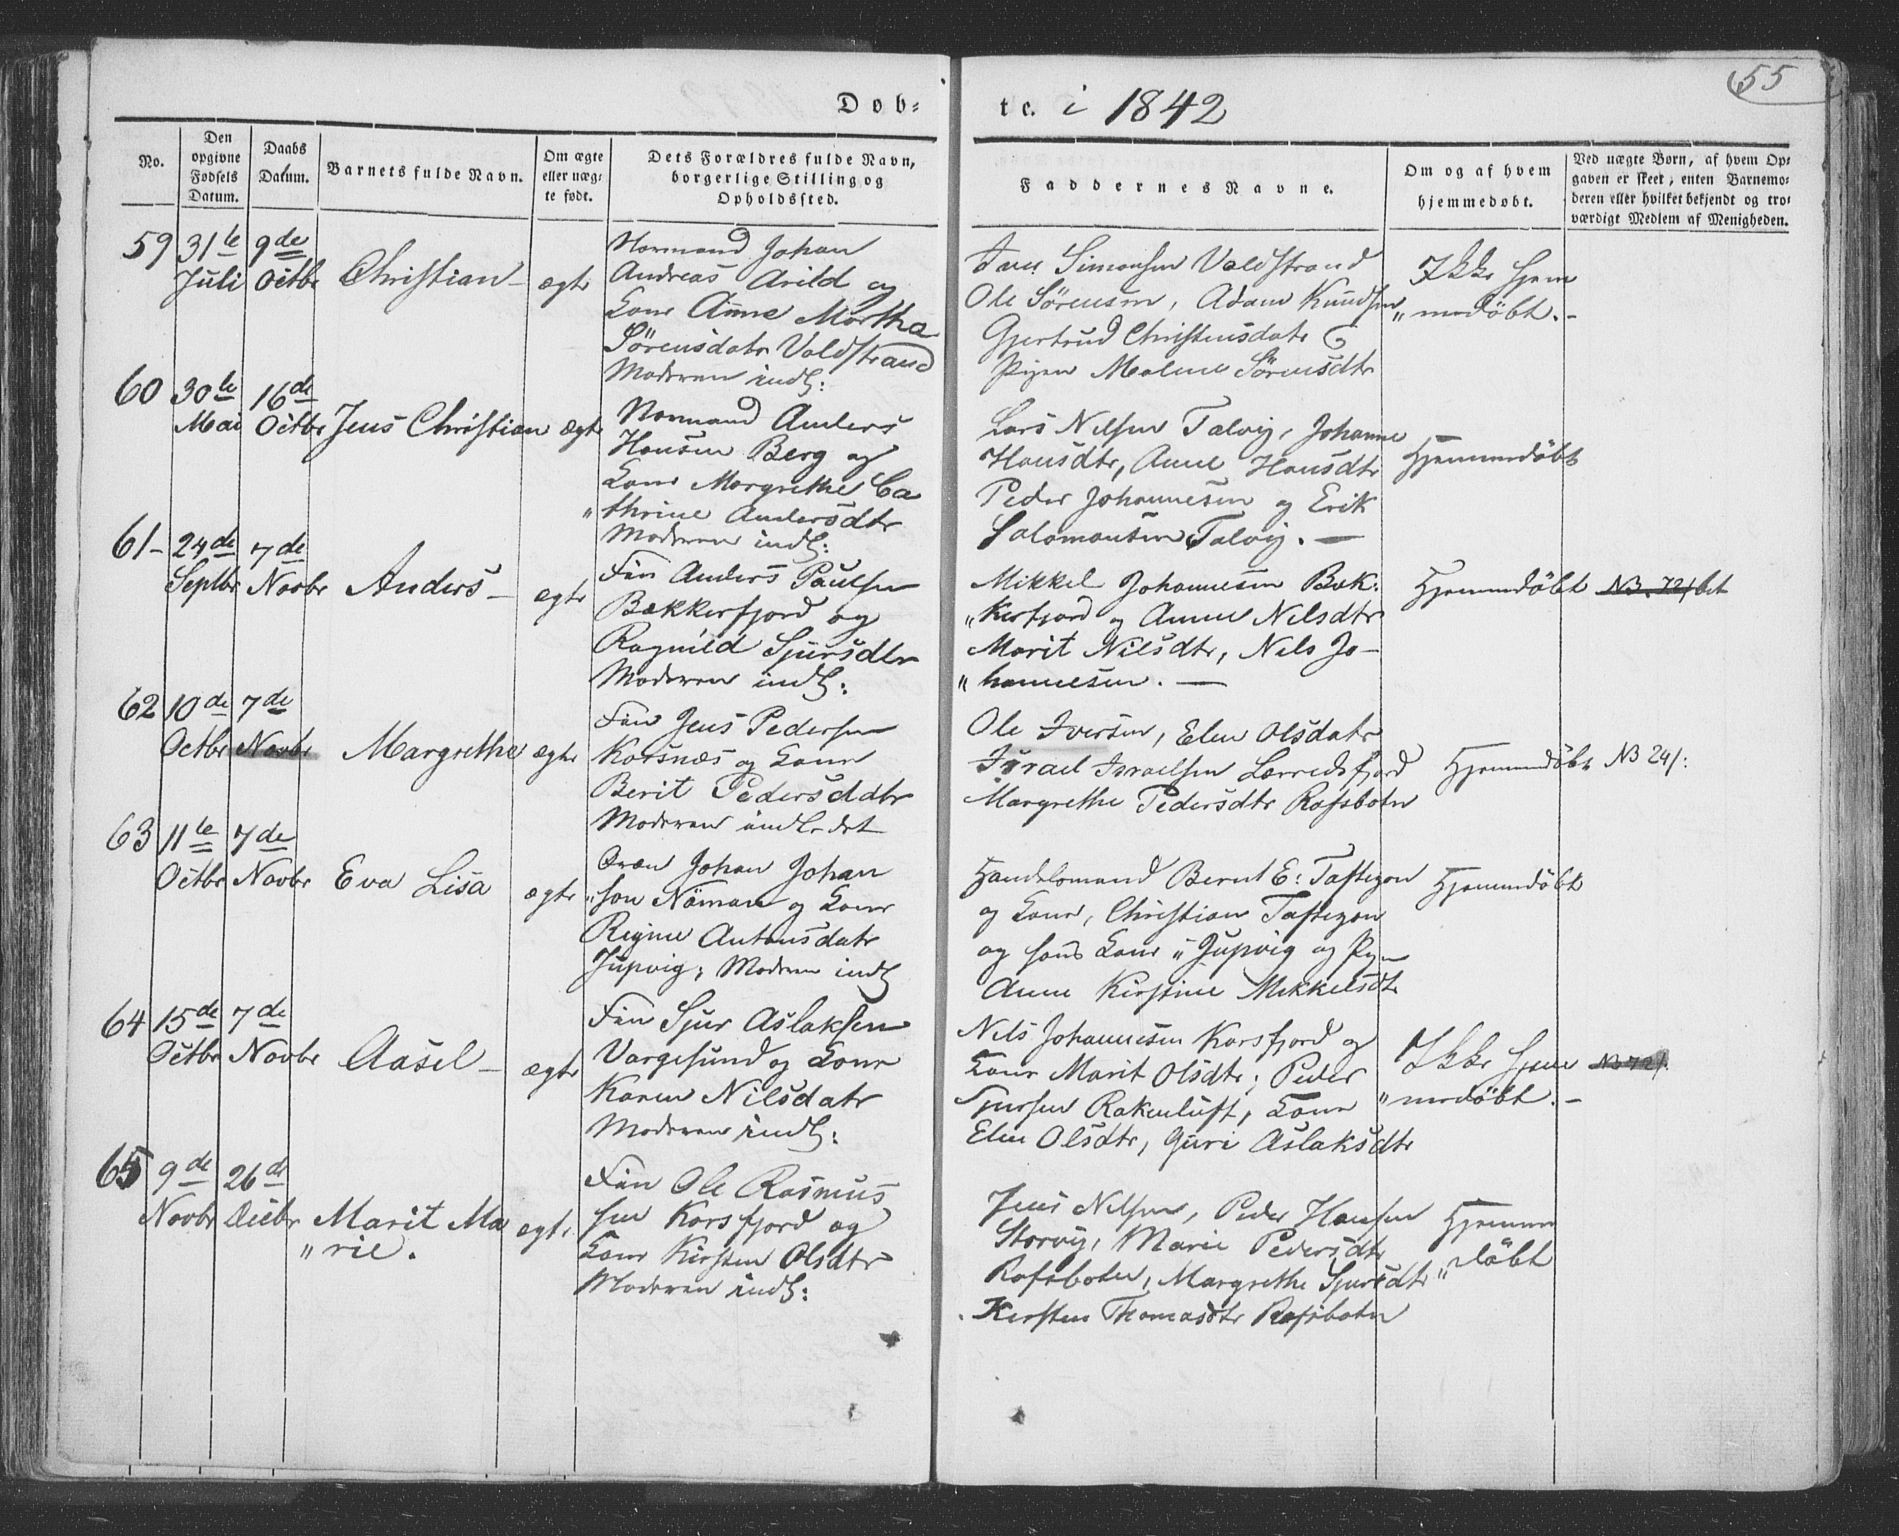 55
Døb-
te. i 1842
No.
Den opgivne Fødsels Datum.
Daabs Datum.
Barnets fulde Navn.
Om ægte eller uæg-te født.
Dets Forældres fulde Navn, borgerlige Stilling og Opholdssted.
Faddernes Navne.
Om og af hvem hjemmedøbt.
Ved uægte Børn, af hvem Op-
gaven er skeet, enten Barnemo-
deren eller hvilket bekjendt og tro-
værdigt Medlem af Menigheden.
59 31te Juli 9de Octbr Christian – ægte
Normand Johan
Andreas Arild og
Kone Anne Martha
Sørensdatr Valdstrand
Moderen indl:
Simonsen Valdstrand
Ole Sörensen, Adam Knudsen
Gjertrud Christensdatr
Pigen Malene Sörensdtr
Ikke hjem
„medöbt. –
60 30te Mai 16de Octbr Jens Christian ægte
Normand Anders
Hansen Berg og
Kone Margrethe Ca
„thrine Andersdtr
Moderen indl:
Lars Nilsen Talvig, Johanne
Hansdtr, Anne Hansdtr
Peder Johannesen og Erik
Salomonsen Talvig. –
Hjemmedöbt
61– 24de Septbr 7de Novbr Anders – ægte
Fin Anders Paulsen
Bækkerfjord og
Ragnild Sjursdtr
Moderen indl:
Mikkel Johannesen Bek:
„kerfjord og Anne Nilsdtr
Marit Nilsdtr, Nils Jo–
„hannesen. –
Hjemmedöbt NB. 72/ bet
62 10de Octbr 7de Novbr Margrethe ægte
Fin Jens Pedersen
Korsnæs og Kone
Berit Pedersdatr
Moderen indledet
Ole Iversen, Elen Olsdatr
Israel Israelsen Lerredsfjord
Margrethe Pedersdtr Rafsbotn
Hjemmedöbt NB 24/:
63 11te Octbr 7de Novbr Eva Lisa ægte
Qvæn Johan Johan
„sen Näman og Kone
Regine Antonsdatr
Jupvig; Modren indl
Handelsmand Bernt E: Taftezon
og Kone, Christian Taftezon
og hans Kone „ Jupvig og Pigen
Anne Kirstine Mikkelsdtr
Hjemmedöbt
64 15de Octbr 7de Novbr Aasel – ægte
Fin Sjur Aslaksen
Vargesund og Kone
Karen Nilsdatr
Moderen indl:
Nils Johannesen Korsfjord og
Kone Marit Olsdtr; Peder
Sjursen Rakenluft, Kone
Elen Olsdtr, Guri Aslaksdtr
Ikke hjem
„medöbt. –
NB 72/
65 9de Novbr 26de Decbr Marit Ma
„rie. ægte
Fin Ole Rasmus
sen Korsfjord og
Kone Kirsten Olsdtr
Moderen indl:
Jens Nilsen, Peder Hansen
Storvig, Marie Pedersdtr
Rafsboten, Margrethe Sjursdtr
Kirsten Thomasdtr Rafsbotn
Hjemme
„döbt